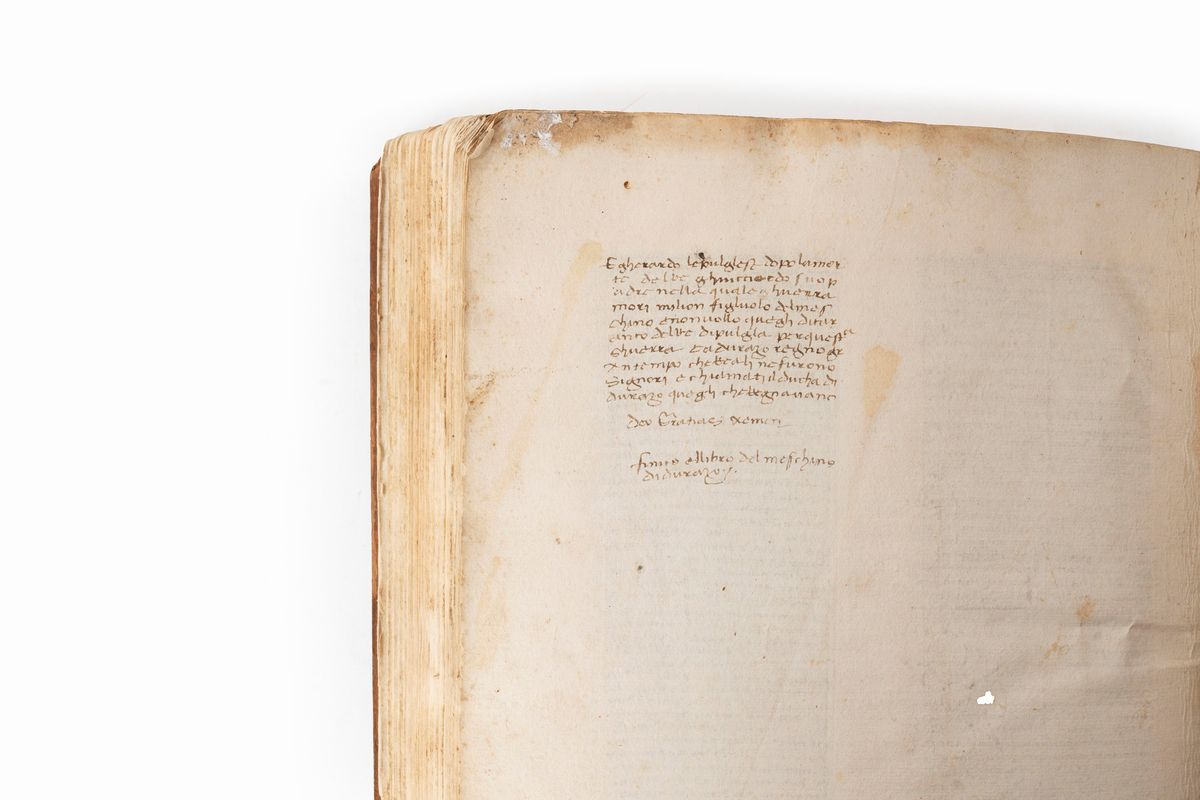 E gherardo lepulglese dopo lamor
te del re ghuicciardo suo p
adre nella quale ghuerra
mori milion figluolo del mes
chino enonvollo quegli ditar
anto del re dipulgla per questa
ghuerra E adurazo regno gr
xn tempo che reali ne furono
Signori e chiamati i ducha di
durazo quegli che regnavano
deo Gratias xemen
finito ellibro del meschino
didurazo